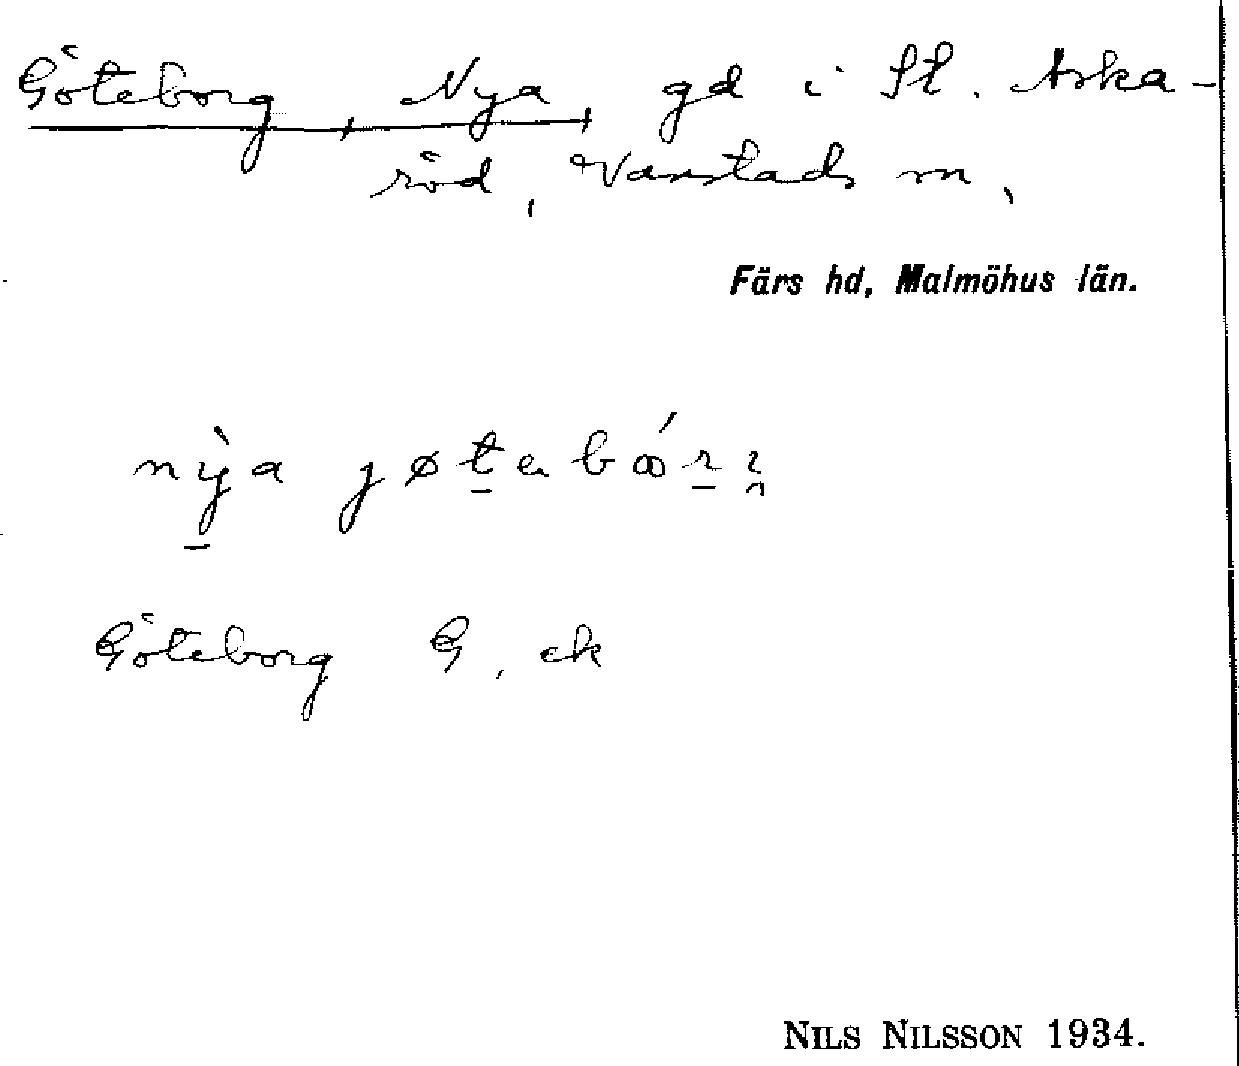 Göteborg, Nya, gd i St. Aska-
röd, Vanstads sn,
Färs hd, Malmöhus län.
nỳa jøtabǿrj
Göteborg G. ek
NILS NILSSON 1934.